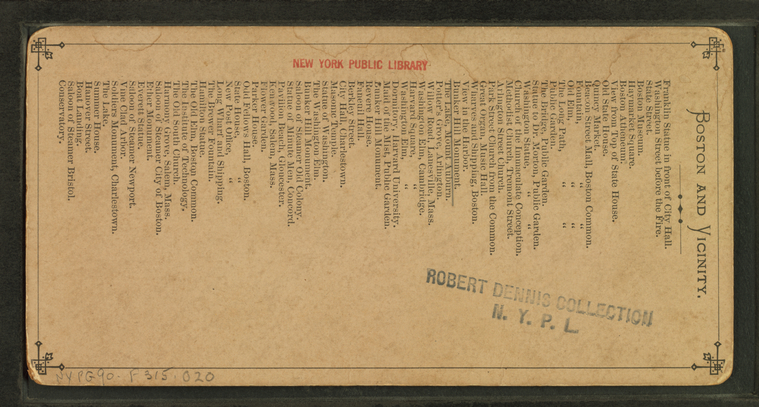 NEW YORK PUBLIC LIBRARY
BOSTON AND VICINITY.
Franklin Statue in front of City Hall.
Washington Street before the Fire.
State Street.
Haymarket Square.
Boston Museum.
Boston Atheneum.
View from Top of State House.
Old State House.
Quincy Market.
Beacon Street Mall, Boston Common.
Fountain, " "
Old Elm, " "
The Long Path, " "
Public Garden.
The Bridge, Public Garden.
Statue Dr. Morton, Public Garden.
Washington Statue, " "
Church of the Immaculate Conception.
Methodist Church, Tremont Street.
Arlington Street Church.
Park Street from the Common.
Great Organ, Music Hall.
View of Boston Harbor.
Wharves and Shipping, Boston.
Bunker Hill Monument.
The Tower, Mount Auburn.
Willow Road, Lanesville, Mass.
Peter's Grove, Arlington.
Memorial Hall, Cambridge.
Harvard Square, "
Washington Elm, "
Library, Harvard University.
Maid of the Mist, Public Garden.
Zunker Monument.
Revere House.
Faneuil Hall.
Bird's-eye of Market.
City Hall, Charlestown.
Masonic Temple.
Statue of Washington.
The Washington Elm.
Bunker's Monument.
Saloon of Steamer Old Colony.
Statue of Minute Men, Concord.
Pavilion Beach, Gloucester.
Kernwood, Salem, Mass.
Flower Garden.
Parker House.
Odd Fellows Hall, Boston.
State House, "
New Post Office, "
Long Wharf and Shipping.
The Brewer Fountain.
Hamilton Statue.
The Old Elm, Boston Common.
The Institute of Technology.
The Old South Church.
Harmony Grove, Salem, Mass.
Saloon of Steamer City of Boston.
Ether Monument.
Evening Scene.
Saloon of Steamer Newport.
Vine Clad Arbor.
Soldiers' Monument, Charlestown.
The Lake.
Summer House.
Hanover Street.
Boat Landing.
Saloon of Steamer Bristol.
Conservatory.
ROBERT DENNIS COLLECTION
N. Y. P. L
NYPG90-F315.020